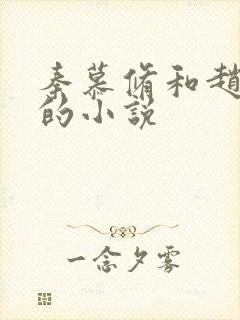 秦慕脩和趙
的小說
一念夕雾